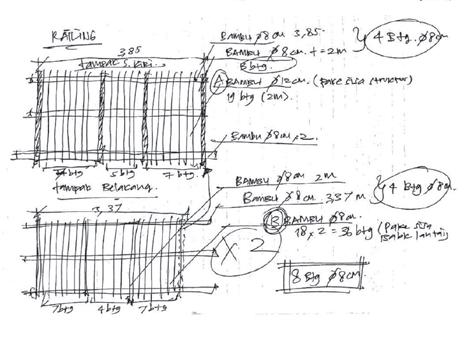 RAILING
3,85
TAMPAK S. KIRI
BAMBU Ø8cm 3,85
BAMBU Ø8cm t=2m
8 btg
4 Btg. Ø8cm
A BAMBU Ø12cm (Pake sisa struktur)
19 btg (2m).
BAMBU Ø8cm x 2
5 btg
7 btg
Tampak Belakang
3,37
BAMBU Ø8cm 2m
BAMBU Ø8cm. 3.37 m
4 Btg Ø8cm
B BAMBU Ø8cm.
18 x 2 = 36 btg (Pake sisa
X 2
8 Btg Ø8cm
7btg
4btg
7btg